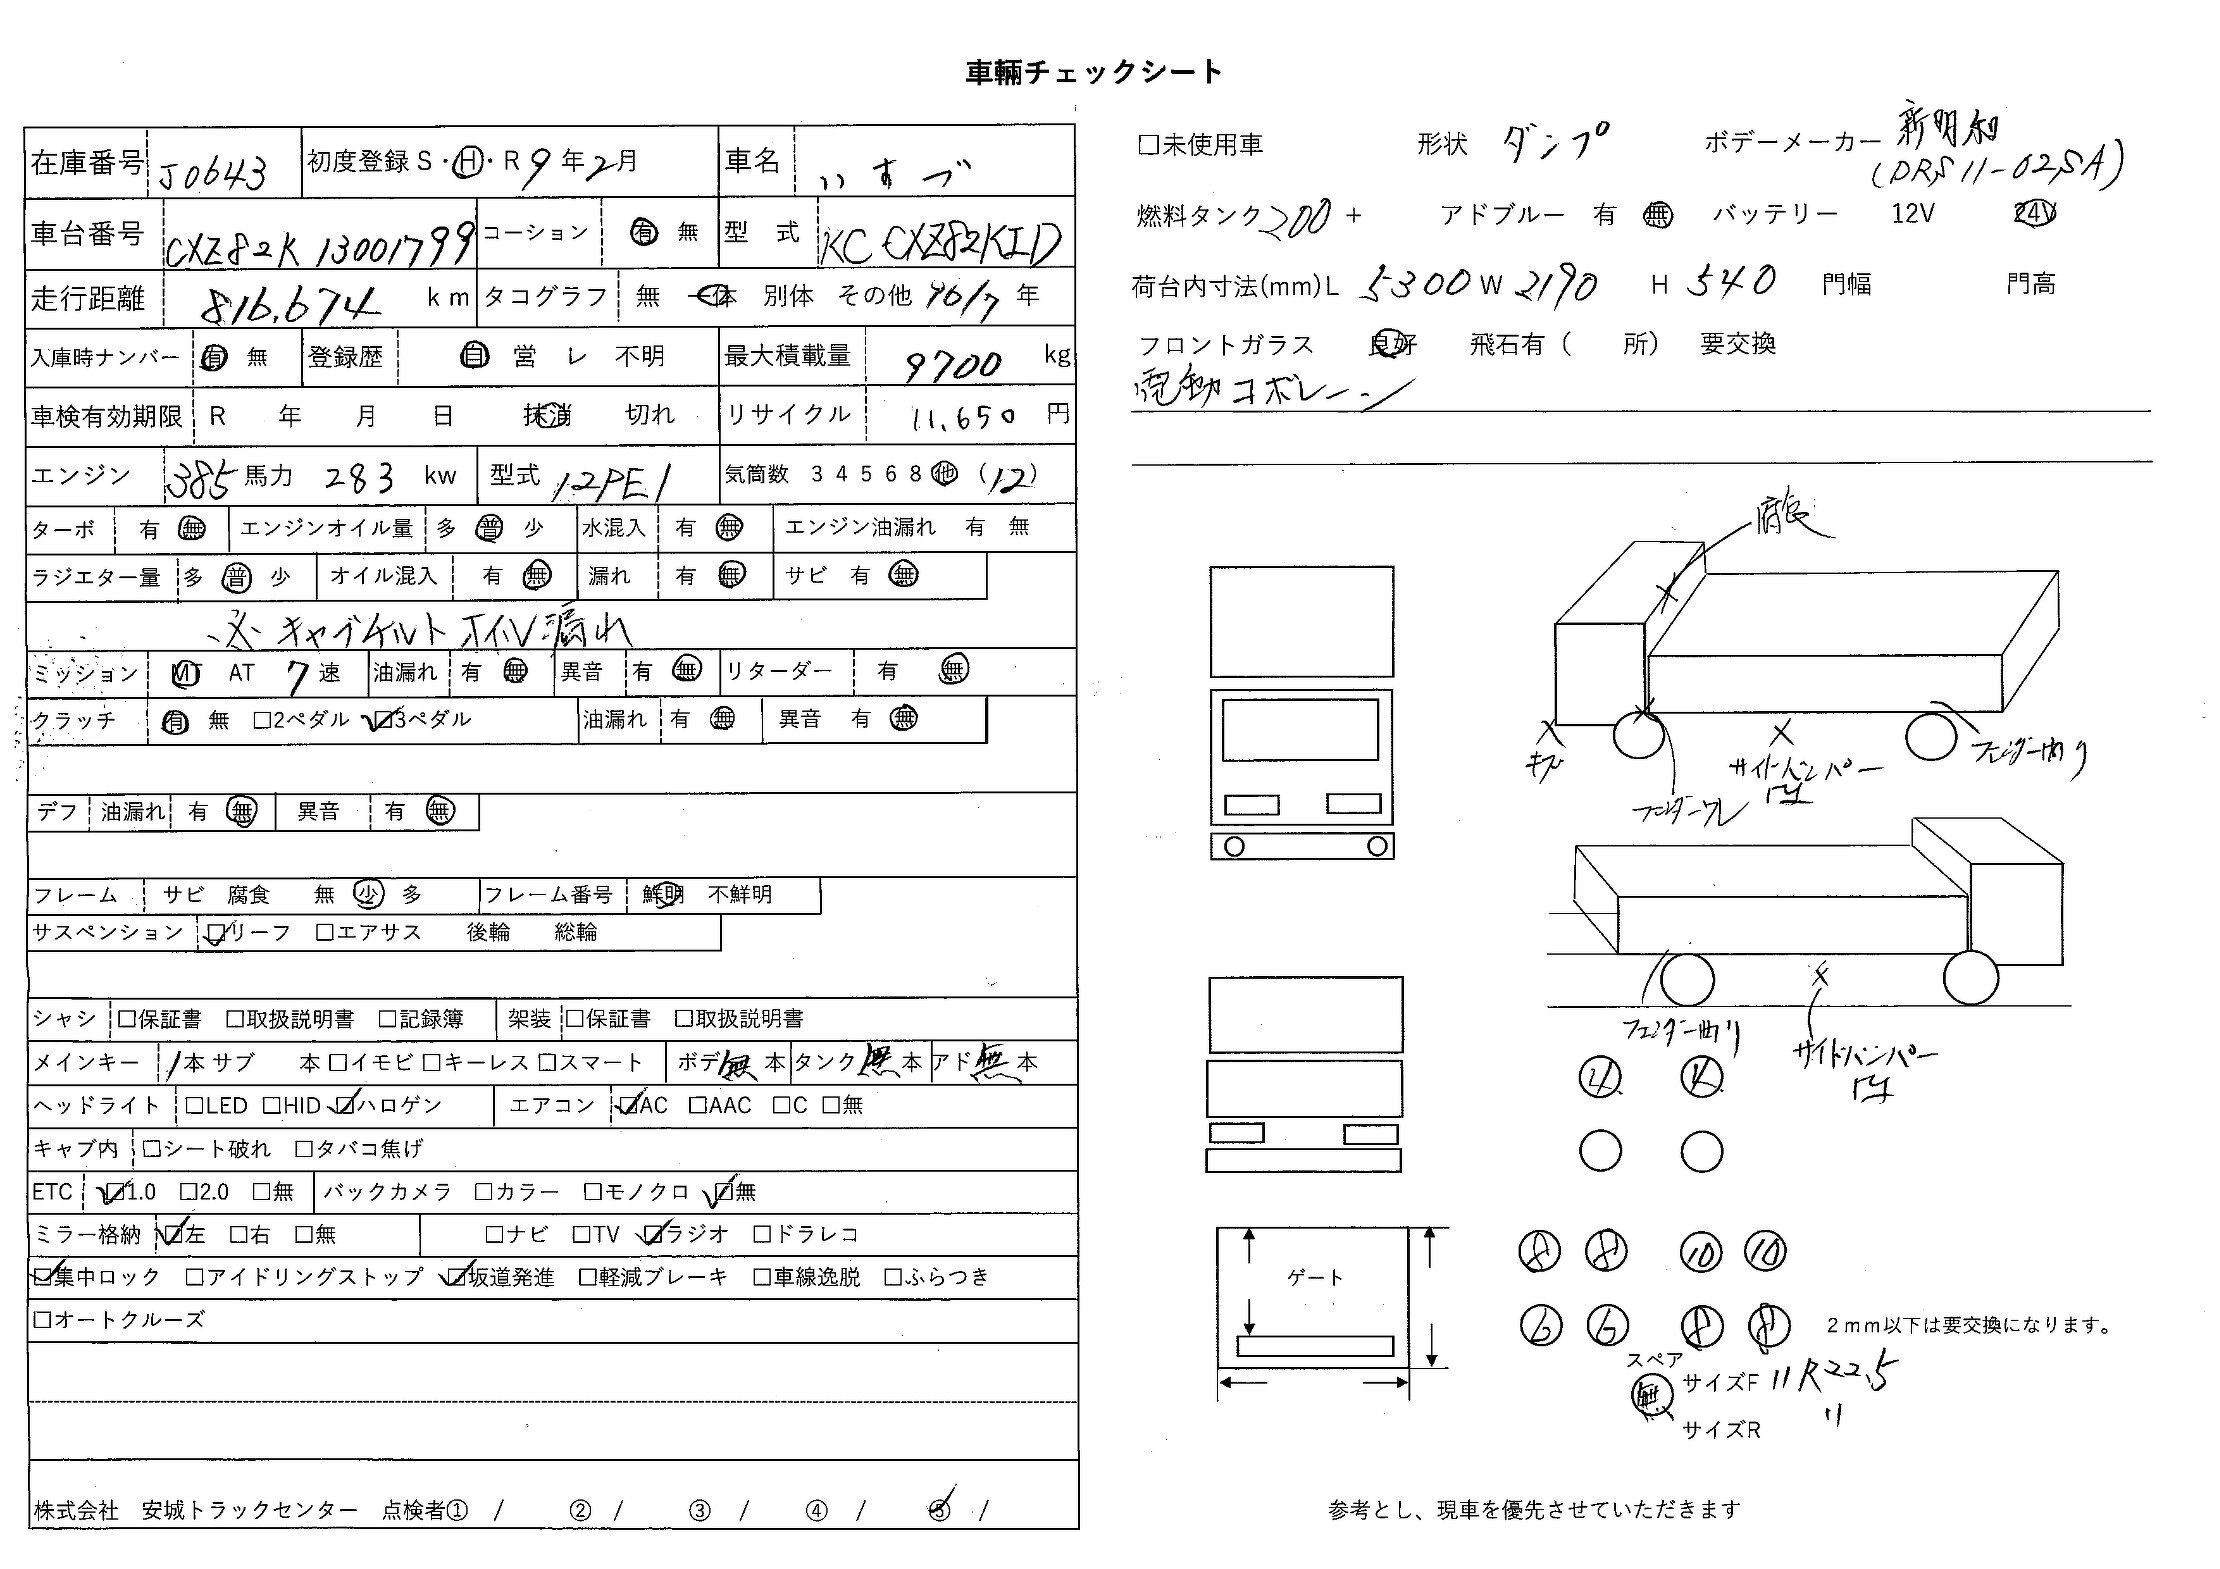 車輌チェックシート
在庫番号 J0643 初度登録 S・H・R 9年2月 車名 いすゞ
車台番号 CXZ82K 13001799 コーション 有 無 型 式 KC CXZ82K1D
走行距離 816,674 km タコグラフ 無 一体 別体 その他 96/7 年
入庫時ナンバー 有 無 登録歴 自 営 レ 不明 最大積載量 9700 kg
車検有効期限 R 年 月 日 抹消 切れ リサイクル 11,650 円
エンジン 385 馬力 283 kw 型式 12PE1 気筒数 3 4 5 6 8 他 (12)
ターボ 有 無 エンジンオイル量 多 普 少 水混入 有 無 エンジン油漏れ 有 無
ラジエター量 多 普 少 オイル混入 有 無 漏れ 有 無 サビ 有 無
※キャブチルトオイル漏れ
ミッション MT AT 7速 油漏れ 有 無 異音 有 無 リターダー 有 無
クラッチ 有 無 □2ペダル ☑3ペダル 油漏れ 有 無 異音 有 無
デフ 油漏れ 有 無 異音 有 無
フレーム サビ 腐食 無 少 多 フレーム番号 鮮明 不鮮明
サスペンション ☑リーフ □エアサス 後輪 総輪
シャシ □保証書 □取扱説明書 □記録簿 架装 □保証書 □取扱説明書
メインキー 1本 サブ 本 □イモビ □キーレス □スマート ボデ無本 タンク無本 アド無本
ヘッドライト □LED □HID ☑ハロゲン エアコン ☑AC □AAC □C □無
キャブ内 □シート破れ □タバコ焦げ
ETC ☑1.0 □2.0 □無 バックカメラ □カラー □モノクロ ☑無
ミラー格納 ☑左 □右 □無 □ナビ □TV ☑ラジオ □ドラレコ
☑集中ロック □アイドリングストップ ☑坂道発進 □軽減ブレーキ □車線逸脱 □ふらつき
□オートクルーズ
株式会社 安城トラックセンター 点検者① / ② / ③ / ④ / ⑤ /
□未使用車 形状 ダンプ ボデーメーカー 新明和
(DRS11-02SA)
燃料タンク 200 + アドブルー 有 無 バッテリー 12V 24V
荷台内寸法(mm)L 5300 W 2190 H 540 門幅 門高
フロントガラス 良好 飛石有( 所) 要交換
電動コボレーン
腐食
キズ
フェンダーワレ
サイドバンパー
凹
フェンダー曲り
フェンダー曲り
サイドバンパー
凹
4
8 8 10 10
ゲート
6 6 8 8
2mm以下は要交換になります。
スペア
無
サイズF 11R22.5
サイズR 〃
参考とし、現車を優先させていただきます